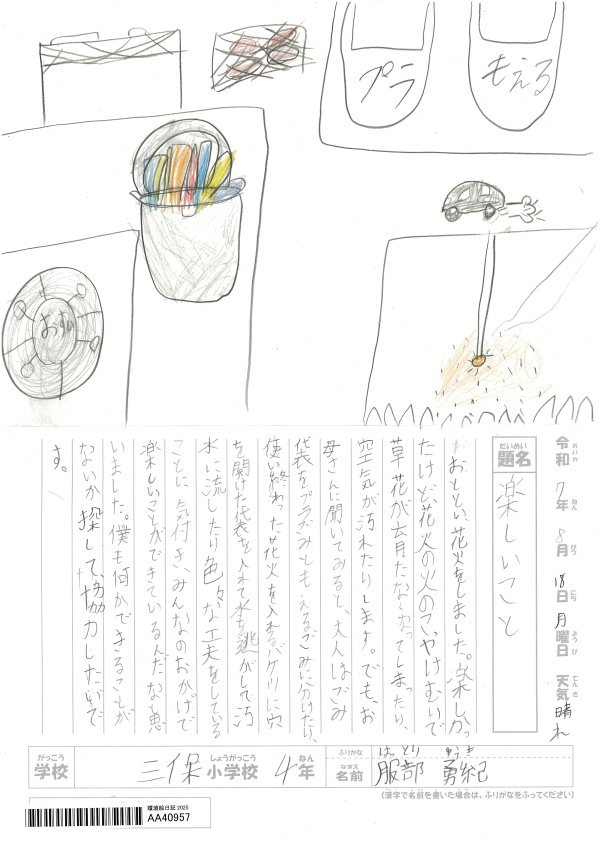 プラ
もえる
おすい
令和7年8月18日月曜日 天気 晴れ
れいわ ねん がつ にち ようび てんき
だいめい
題名
楽しいこと
おととい、花火をしました。楽しかっ
たけど、花火の火のこやけむいで
草花が育たなくなってしまったり、
空気が汚れたりします。でも、お
母さんに聞いてみると、大人はごみ
代表をプラごみともえるごみに分けたり、
使い終わった花火を入れるバケツに穴
を開けた代表を入れて水を逃がして汚
水に流したり色々な工夫をしている
ことに気付き、みんなのおかげで
楽しいことができているんだなと思
いました。僕も何かできることが
ないか探して、協力したいで
す。
がっこう
学校
三保
しょうがっこう
小学校
4
ねん
年
ふりがな
はっとり ゆうき
なまえ
名前
服部 勇紀
(漢字で名前を書いた場合は、ふりがなをふってください)
環境絵日記 2025
AA40957